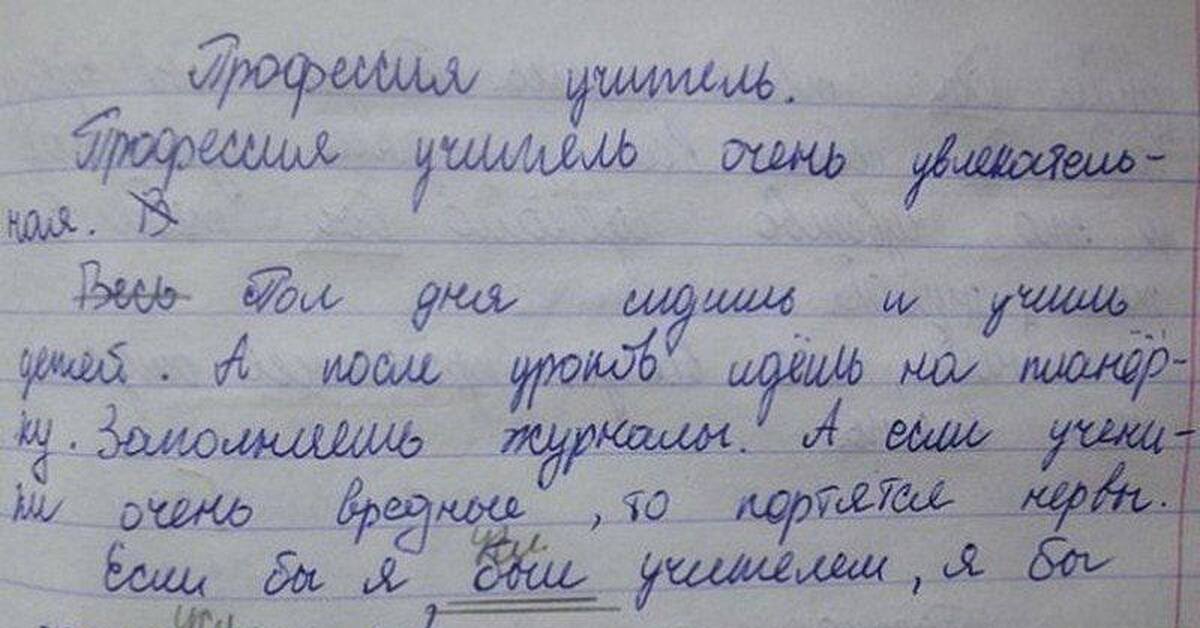 Профессия учитель.
Профессия учитель очень увлекатель-
ная. В
Весь Пол дня сидишь и учишь
детей. А после уроков идёшь на планёр-
ку. Заполняешь журналы. А если учени-
ки очень вредные, то портятся нервы.
Если бы я был учителем, я бы